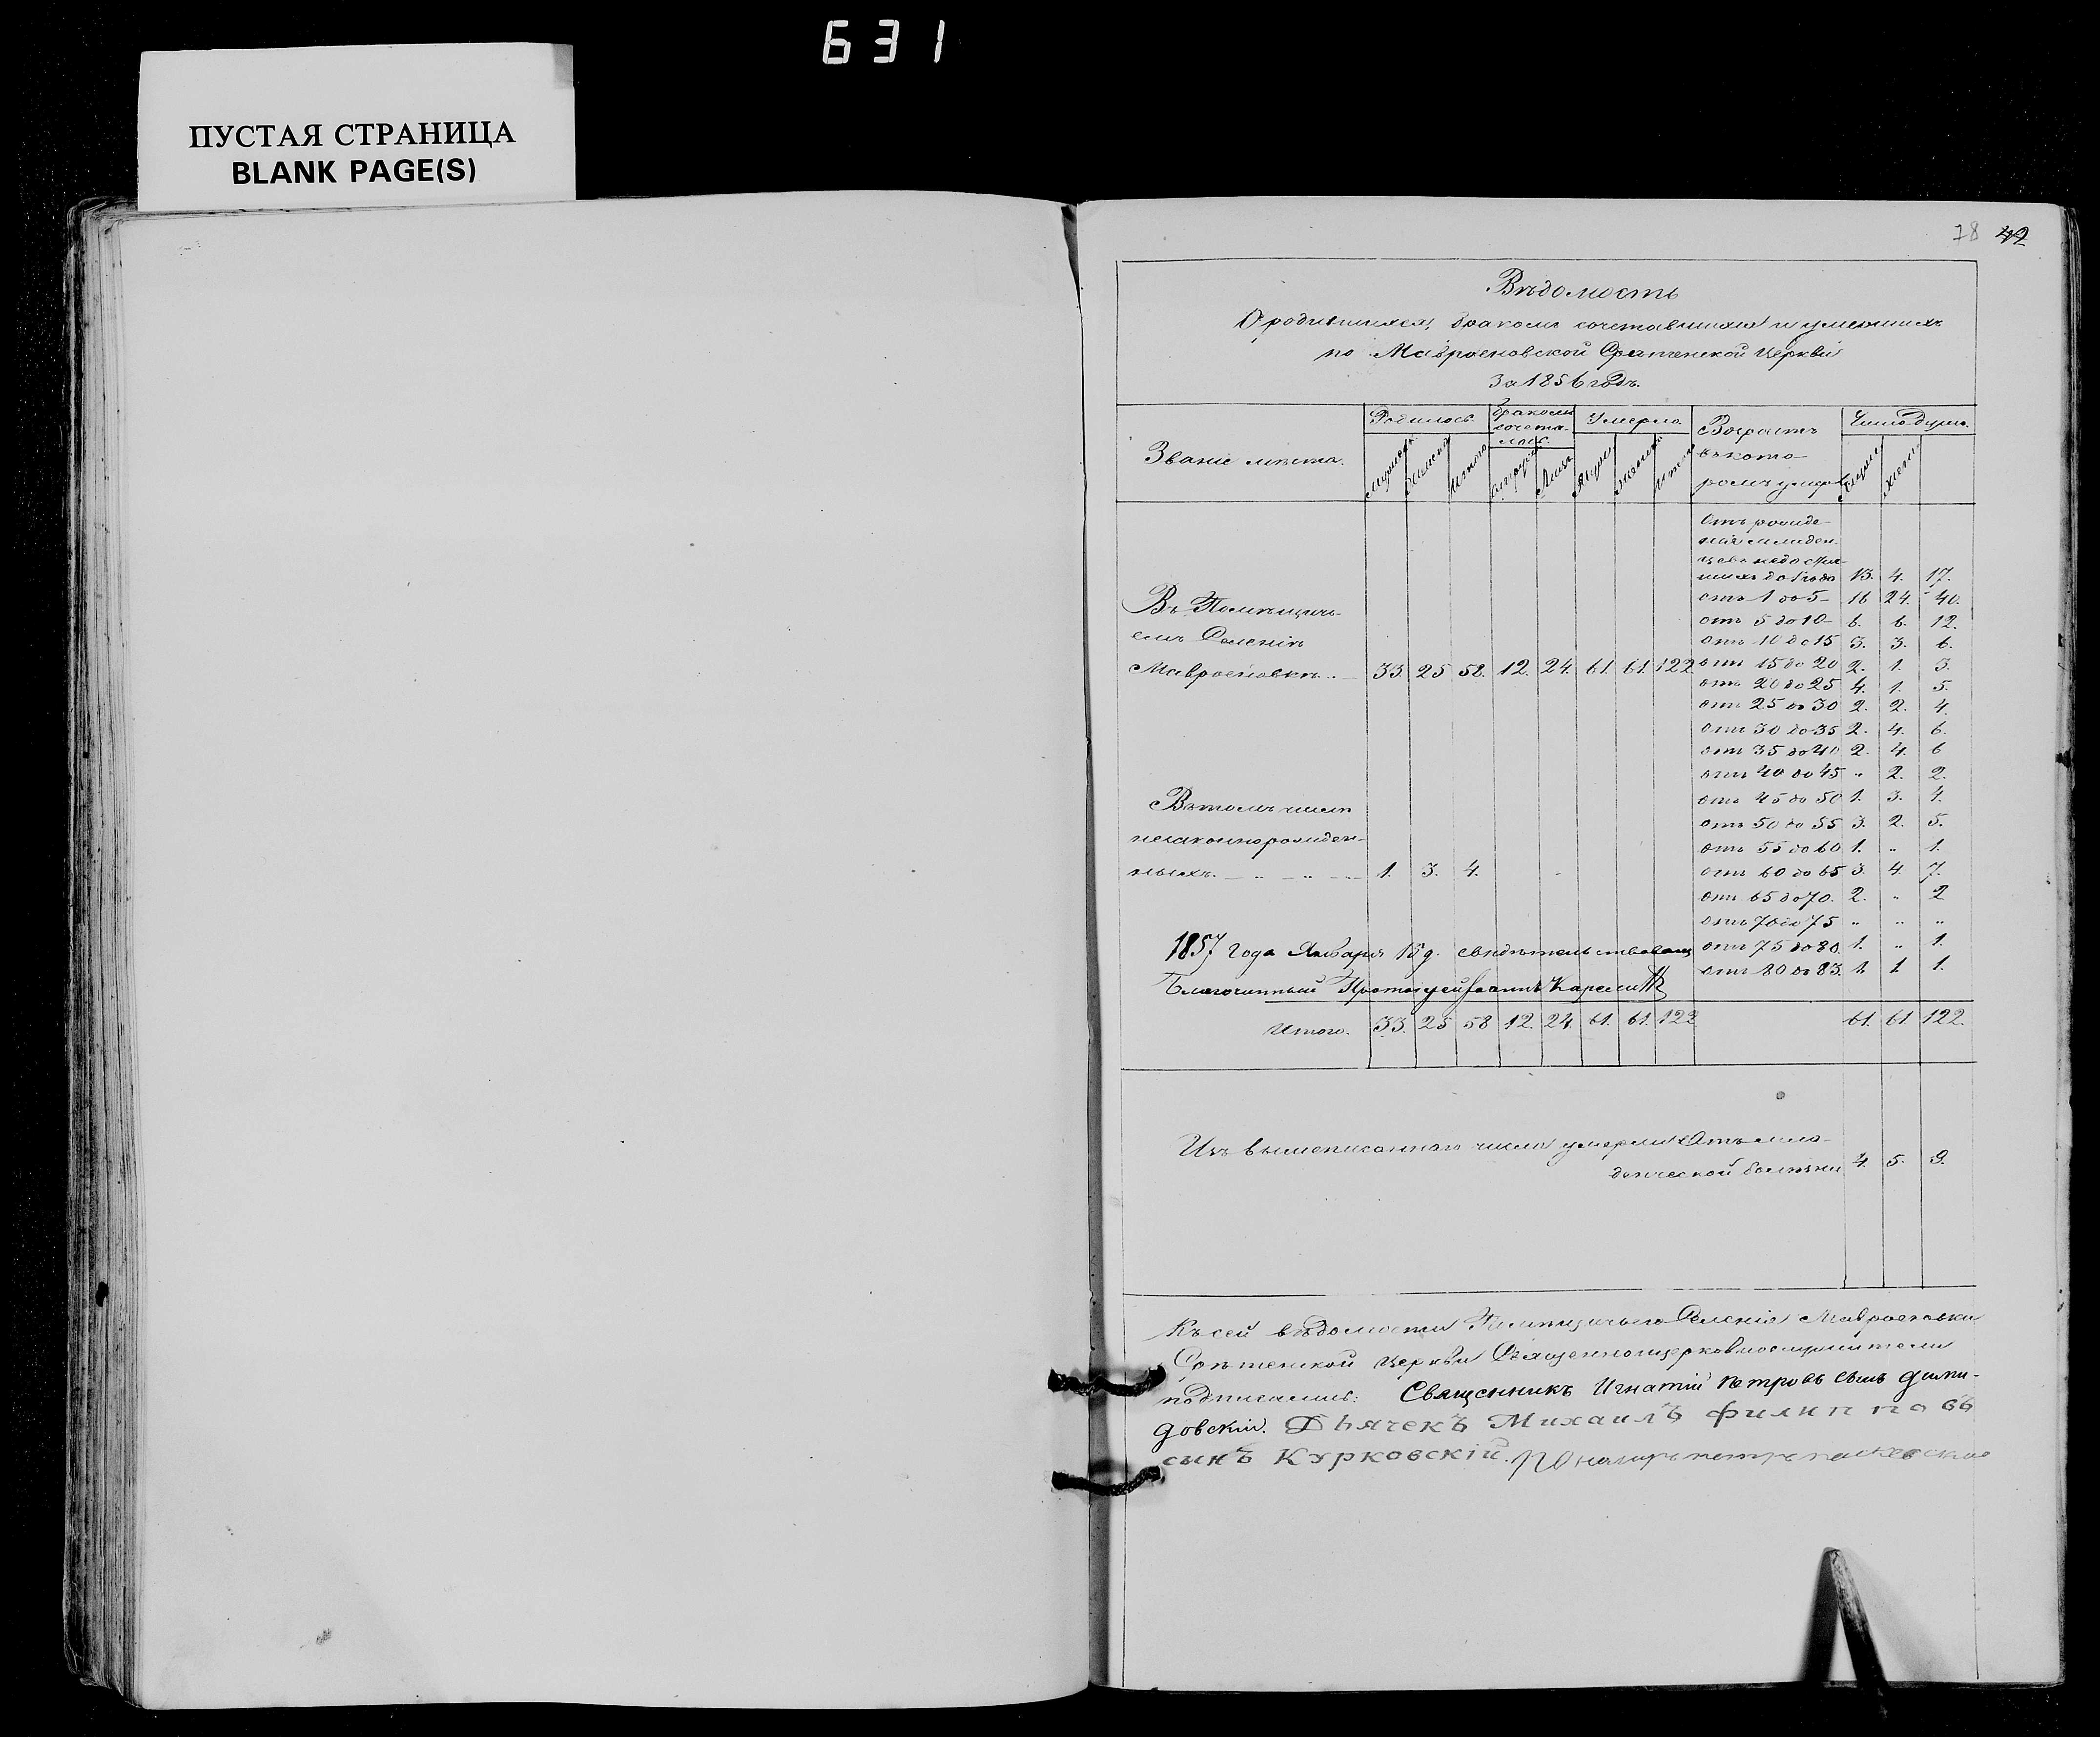 631
ПУСТАЯ СТРАНИЦА
BLANK PAGE(S)
78 42
Вѣдомость
О родившихся, бракомъ сочетавшихся и умершихъ
по Мавроеновской Срѣтенской Церкви
За 1856 годъ.
Званіе мѣста. Родилось. бракомъ сочета-лось. Умерло. Возрастъ въ кото-ромъ умер. Число душъ.
Отъ рожде-
нія младен-
цевъ недостиг-
шихъ до 1 года 13. 4. 17.
Въ Помѣщичь- отъ 1 до 5 16 24. 40.
отъ 5 до 10 6. 6. 12.
емъ Селеніи отъ 10 до 15 3. 3. 6.
Мавроеновкѣ. 33. 25 58. 12. 24. 61. 61. 122 отъ 15 до 20 2. 1. 3.
отъ 20 до 25 4. 1. 5.
отъ 25 до 30 2. 2. 4.
отъ 30 до 35 2. 4. 6.
отъ 35 до 40 2. 4. 6
отъ 40 до 45 „ 2. 2.
Въ томъ числѣ отъ 45 до 50 1. 3. 4.
отъ 50 до 55 3. 2. 5.
незаконнорожден- отъ 55 до 60 1. „ 1.
ныхъ. 1. 3. 4. отъ 60 до 65 3. 4. 7.
отъ 65 до 70. 2. „ 2
отъ 70 до 75 „ „ „
1857 года Января 15 д. свидѣтельствовалъ отъ 75 до 80. 1. „ 1.
Благочинный Протоіерей Іоаннъ отъ 80 до 83. 1. 1 1.
Итого. 33. 25 58 12. 24. 61. 61. 122 61. 61 122.
Изъ вышеписаннаго числа умерли Отъ мла-
денческой болѣзни 4. 5. 9.
Къ сей вѣдомости Помѣщичьяго Селенія Мавроеновки
Срѣтенской Церкви Священноицерковнослужители
подписались: Священникъ Игнатій Петровъ сынъ Деми-
довскій. Дьячекъ Михаилъ Филипповъ
сынъ Курковскій. Пономарь Петръ